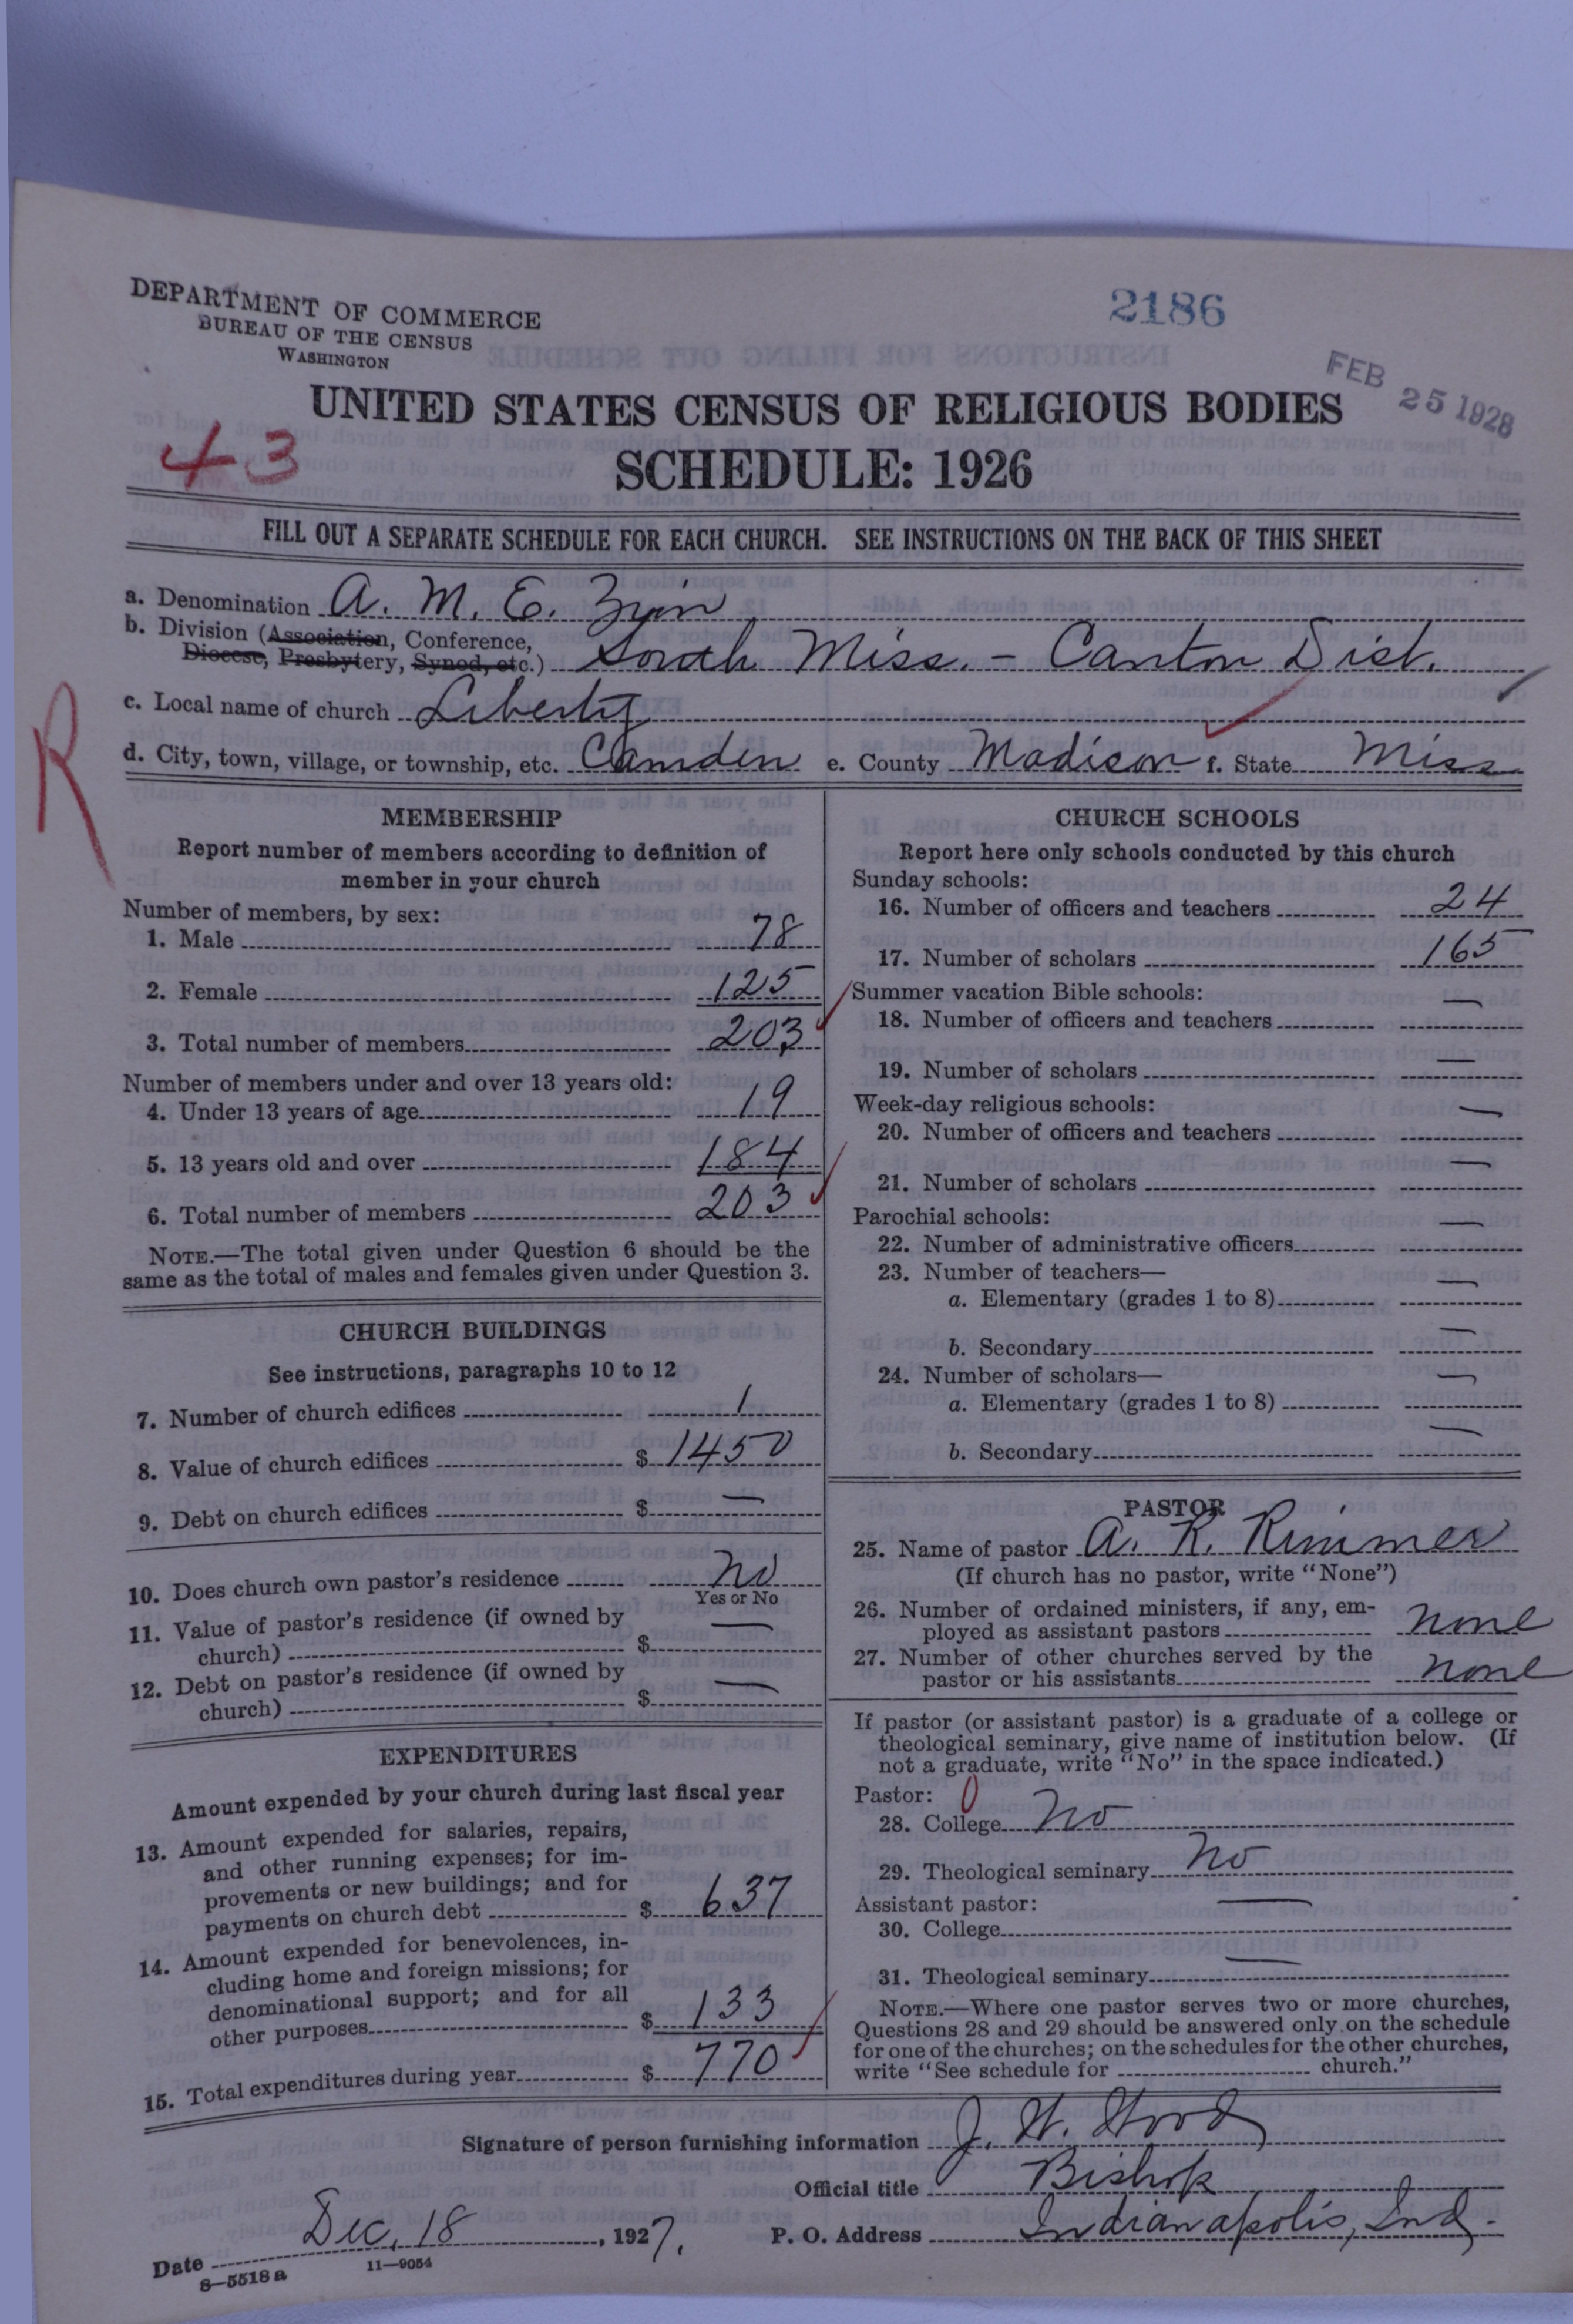 DEPARTMENT OF COMMERCE
BUREAU OF THE CENSUS
WASHINGTON
2186
FEB 25 1928
UNITED STATES CENSUS OF RELIGIOUS BODIES
43
SCHEDULE: 1926
FILL OUT A SEPARATE SCHEDULE FOR EACH CHURCH. SEE INSTRUCTIONS ON THE BACK OF THIS SHEET
a. Denomination A. M. E. Zion
b. Division (Association, Conference,
Diocese, Presbytery, Synod, etc.) South Miss. - Canton Dist.
c. Local name of church Liberty
R
d. City, town, village, or township, etc. Camden e. County Madison f. State Miss
MEMBERSHIP
Report number of members according to definition of
member in your church
Number of members, by sex:
1. Male 78
2. Female 125
3. Total number of members 203
Number of members under and over 13 years old:
4. Under 13 years of age 19
5. 13 years old and over 184
6. Total number of members 203
NOTE.—The total given under Question 6 should be the
same as the total of males and females given under Question 3.
CHURCH BUILDINGS
See instructions, paragraphs 10 to 12
7. Number of church edifices 1
8. Value of church edifices $ 1450
9. Debt on church edifices $ —
10. Does church own pastor's residence No
Yes or No
11. Value of pastor's residence (if owned by
church) $ —
12. Debt on pastor's residence (if owned by
church) $ —
EXPENDITURES
Amount expended by your church during last fiscal year
13. Amount expended for salaries, repairs,
and other running expenses; for im-
provements or new buildings; and for
payments on church debt $ 637
14. Amount expended for benevolences, in-
cluding home and foreign missions; for
denominational support; and for all
other purposes $ 133
15. Total expenditures during year $ 770
CHURCH SCHOOLS
Report here only schools conducted by this church
Sunday schools:
16. Number of officers and teachers 24
17. Number of scholars 165
Summer vacation Bible schools:
18. Number of officers and teachers —
19. Number of scholars —
Week-day religious schools:
20. Number of officers and teachers —
21. Number of scholars —
Parochial schools:
22. Number of administrative officers —
23. Number of teachers—
a. Elementary (grades 1 to 8) —
b. Secondary —
24. Number of scholars—
a. Elementary (grades 1 to 8) —
b. Secondary —
PASTOR
25. Name of pastor A. R. Rimmer
(If church has no pastor, write "None")
26. Number of ordained ministers, if any, em-
ployed as assistant pastors none
27. Number of other churches served by the
pastor or his assistants none
If pastor (or assistant pastor) is a graduate of a college or
theological seminary, give name of institution below. (If
not a graduate, write "No" in the space indicated.)
Pastor: 0
28. College No
29. Theological seminary No
Assistant pastor:
30. College —
31. Theological seminary —
NOTE.—Where one pastor serves two or more churches,
Questions 28 and 29 should be answered only on the schedule
for one of the churches; on the schedules for the other churches,
write "See schedule for church."
Signature of person furnishing information J. W. Wood
Official title Bishop
Date Dec. 18, 1927. P. O. Address Indianapolis, Ind.
8—5518 a 11—9054